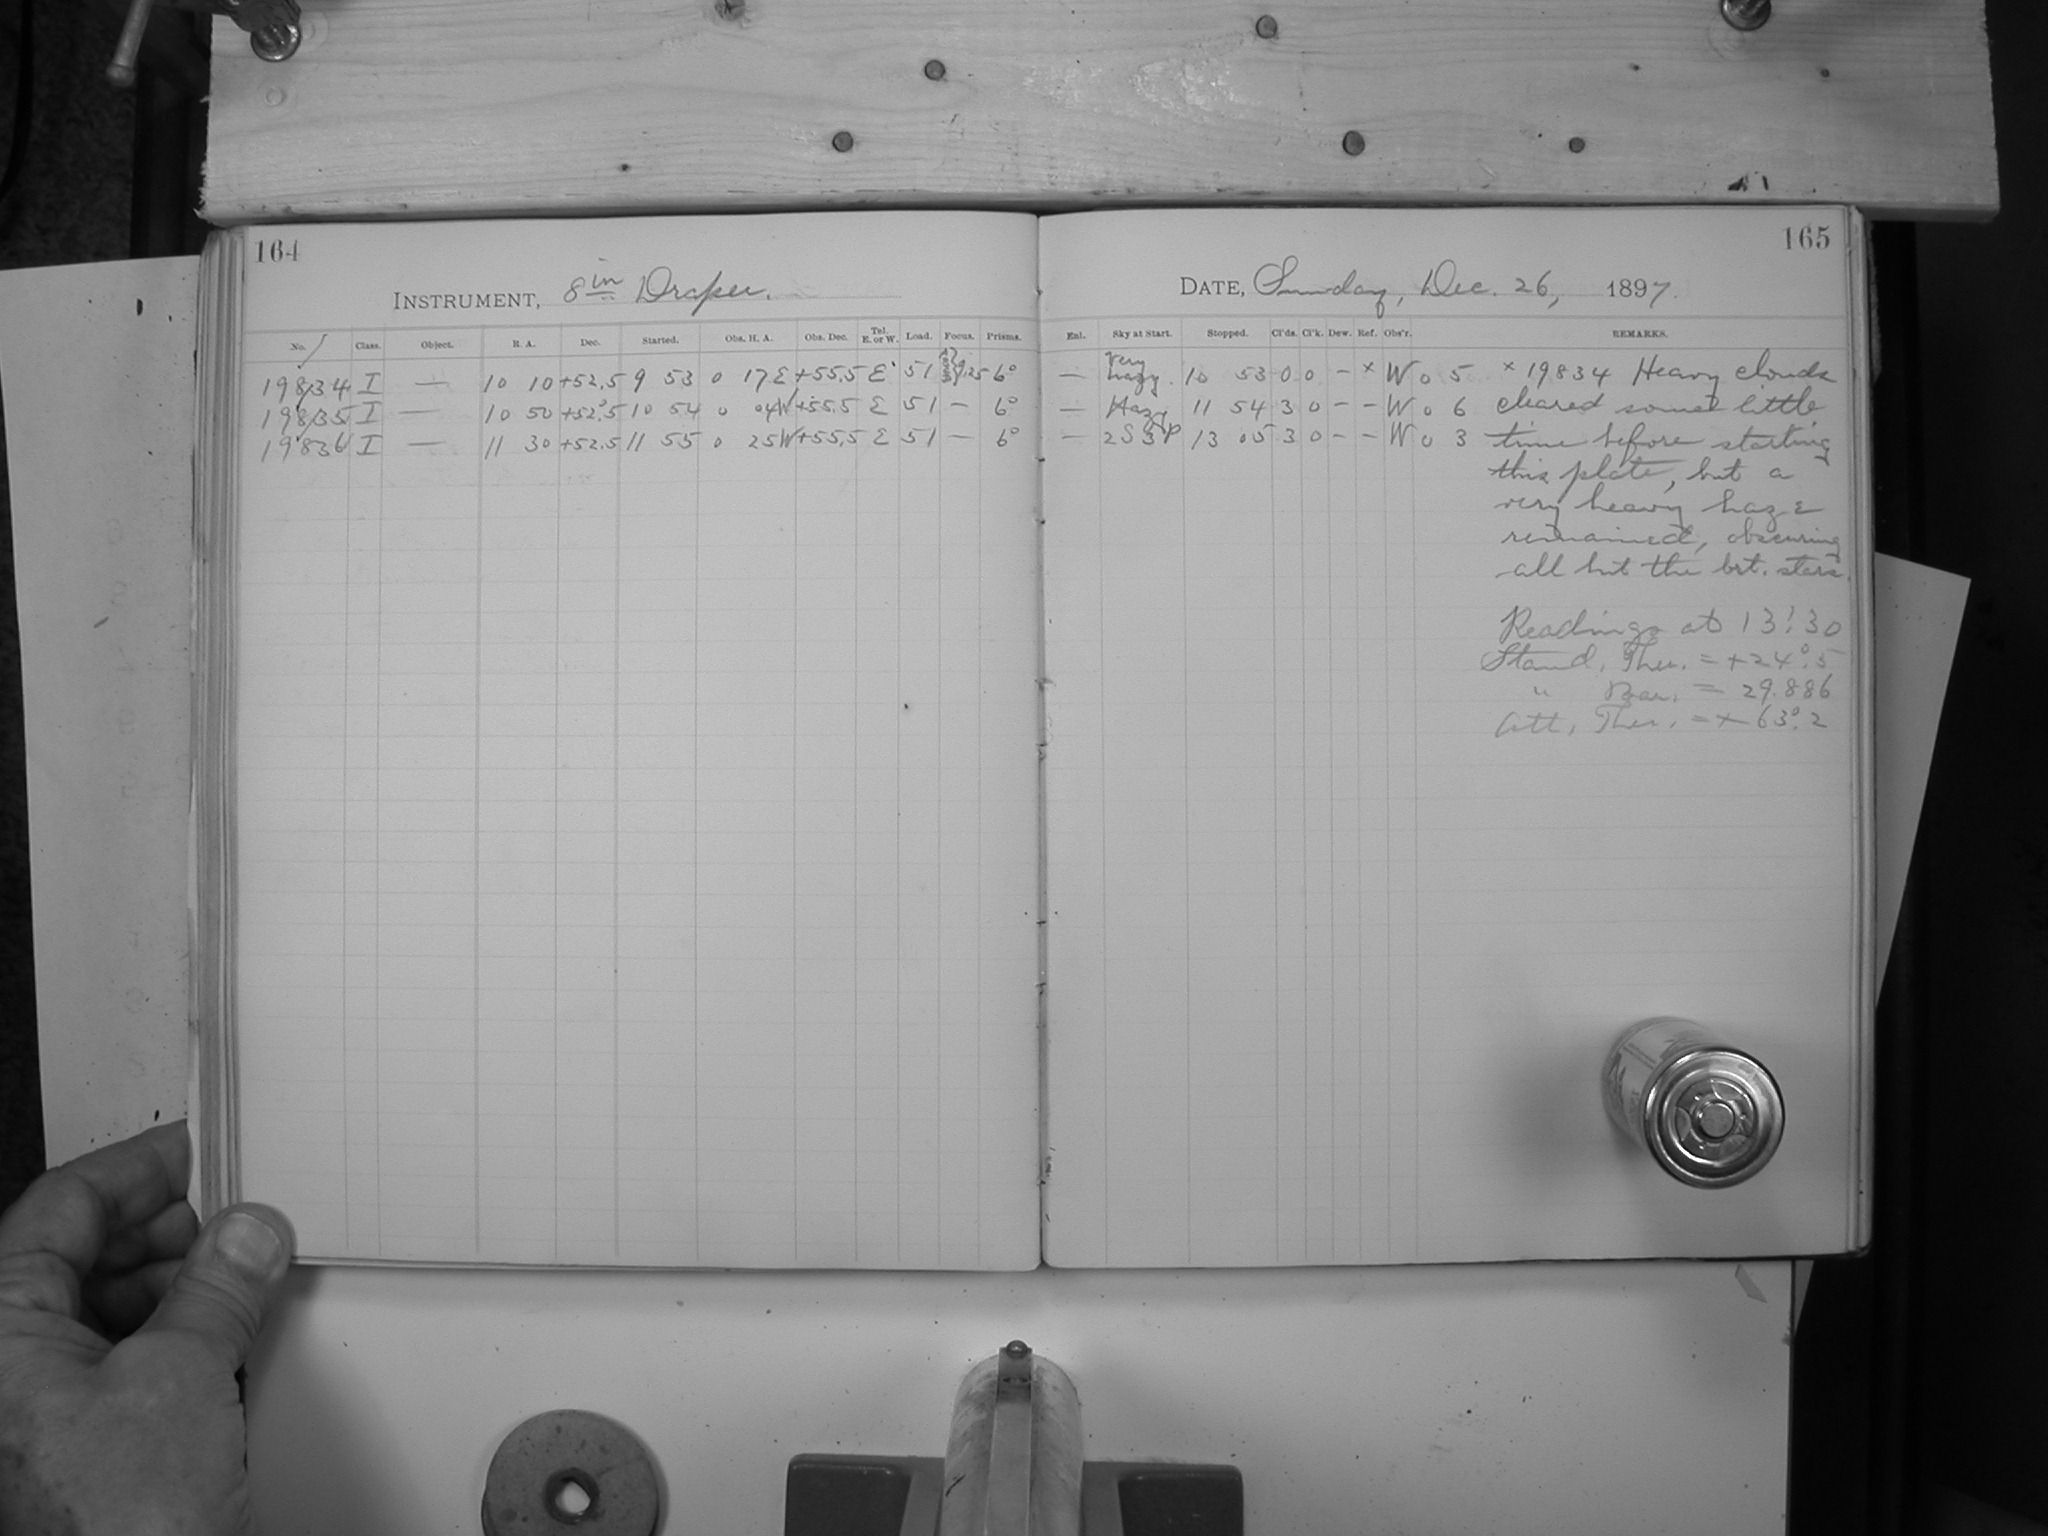 164
INSTRUMENT, 8in Draper.
No. Class. Object. R. A. Dec. Started. Obs. H. A. Obs. Dec. Tel. E. or W. Load. Focus. Prisms.
19834 I — 10 10 +52.5 9 53 0 17 E +55.5 E 51 9.25 6°
19835 I — 10 50 +52°.5 10 54 0 04 W +55.5 E 51 — 6°
19836 I — 11 30 +52.5 11 55 0 25 W +55.5 E 51 — 6°
165
DATE, Sunday, Dec. 26, 1897.
Enl. Sky at Start. Stopped. Cl'ds. Cl'k. Dew. Ref. Obs'r. REMARKS.
— Very hazy. 10 53 0 0 – × W 0 5 × 19834 Heavy clouds
— Hazy 11 54 3 0 – – W 0 6 cleared some little
— 2S3P 13 05 3 0 – – W 0 3 time before starting
this plate, but a
very heavy haze
remained, obscuring
all but the brt. stars.
Readings at 13:30
Stand. Ther. = +24°.5
" Bar. = 29.886
Att. Ther. = +63°.2